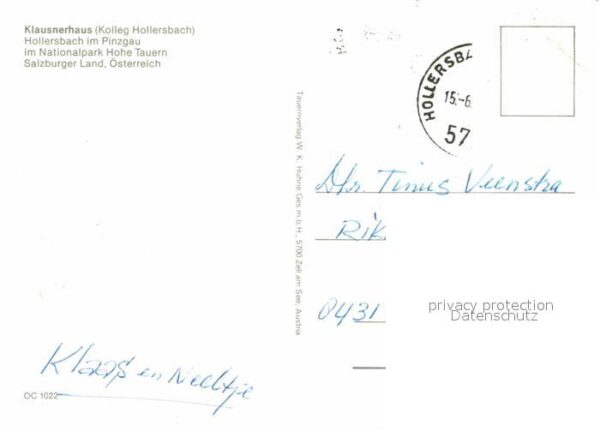 Klausnerhaus (Kolleg Hollersbach)
Hollersbach im Pinzgau
im Nationalpark Hohe Tauern
Salzburger Land, Österreich
HOLLERSBA
15.-6.
57
Tauernverlag W. K. Huhne Ges.m.b.H., 5700 Zell am See, Austria
Tinus Veenstra
Rik
0431
privacy protection
Datenschutz
Klaas en Neeltje
OC 1022